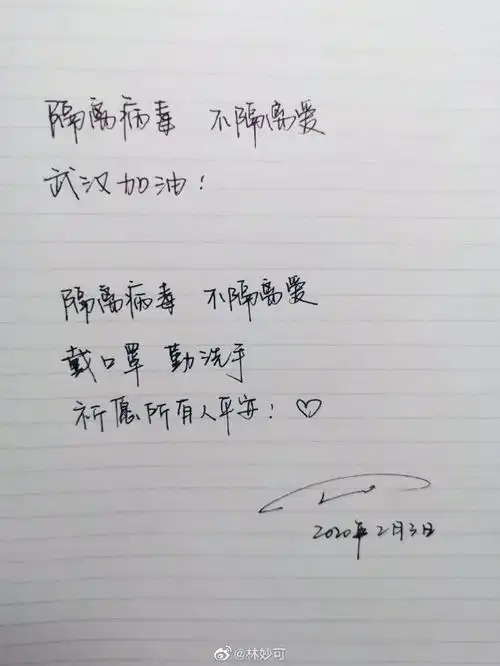 隔离病毒 不隔离爱
武汉加油!
隔离病毒 不隔离爱
戴口罩 勤洗手
祈愿所有人平安! ♡
2020年2月3日
@林妙可